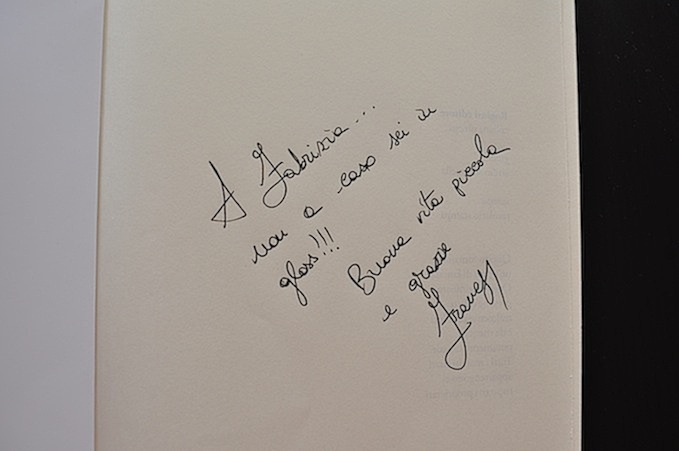 A Fabrizia...
non a caso sei in
gloss!!!
Buona vita piccola
e grazie